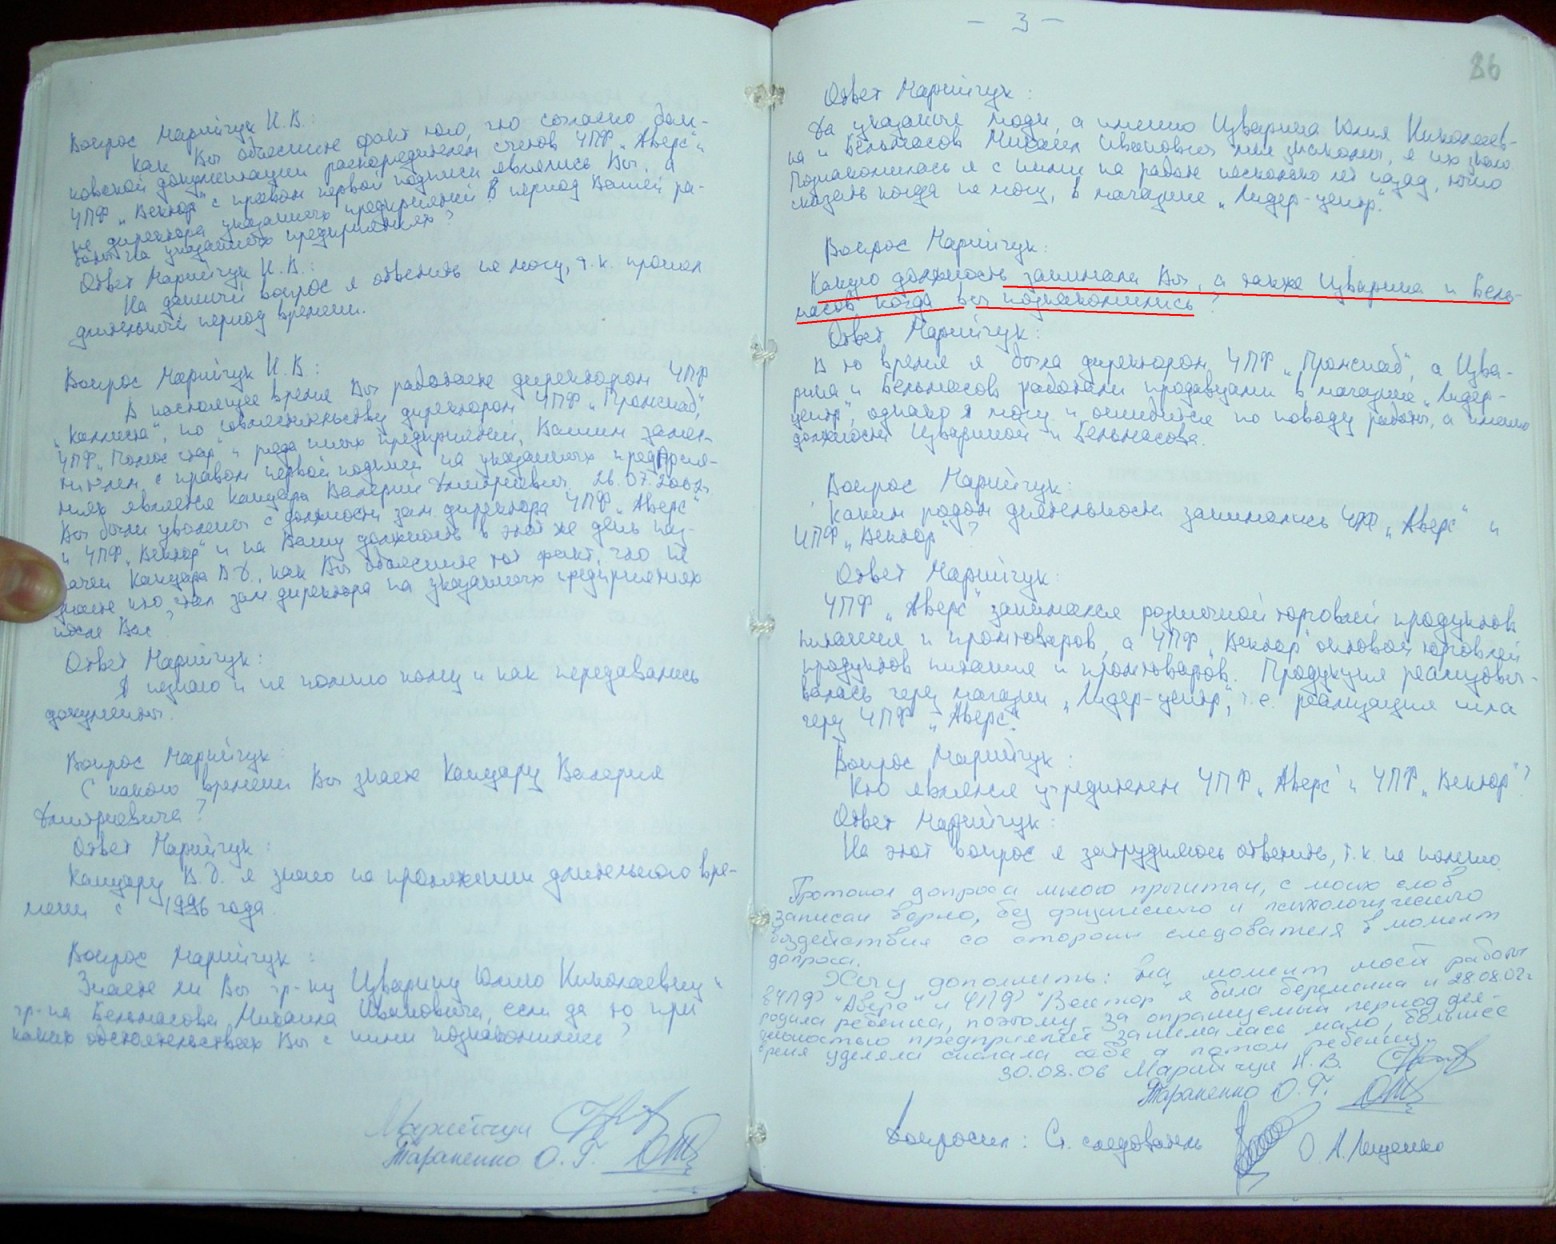 Вопрос Марийчук И.В.:
Как Вы объясните факт того, что согласно бан-
ковской документации распорядителем счетов ЧПФ „Аверс“,
ЧПФ „Вектор“ с правом первой подписи являлись Вы, а
не директора указанных предприятий в период Вашей ра-
боты на указанных предприятиях?
Ответ Марийчук И.В.:
На данный вопрос я ответить не могу, т.к. прошел
длительный период времени.
Вопрос Марийчук И.В:
В настоящее время Вы работаете директором ЧПФ
„Каллиста“, по совместительству директором ЧПФ „Промснаб“,
ЧПФ и ряда иных предприятий, Вашим замес-
тителем, с правом первой подписи на указанных предприя-
тиях является Канцара Валерий Дмитриевич. 26.07.2002г
Вы были уволены с должности зам директора ЧПФ „Аверс“
и ЧПФ „Вектор“ и на Вашу должность в этот же день наз-
начен Канцара В.Д., как Вы объясните тот факт, что не
знаете кто стал зам директора на указанных предприятиях
после Вас?
Ответ Марийчук:
Я не знаю и не помню кому и как передавались
документы.
Вопрос Марийчук:
С какого времени Вы знаете Канцару Валерия
Дмитриевича?
Ответ Марийчук:
Канцару В.Д. я знаю на протяжении длительного вре-
мени с 1996 года.
Вопрос Марийчук:
Знаете ли Вы гр-ку Цварину Юлию Николаевну и
гр-на Бельмасова Михаила Ивановича, если да то при
каких обстоятельствах Вы с ними познакомились?
Марийчук
Тараненко О.Г.
- 3 -
86
Ответ Марийчук:
Да указанные люди, а именно Цварина Юлия Николаев-
на и Бельмасов Михаил Иванович мне знакомы, я их знаю.
Познакомилась я с ними на работе несколько лет назад, точно
сказать когда не могу, в магазине „Лидер-центр“.
Вопрос Марийчук:
Какую должность занимали Вы, а также Цварина и Бель-
масов, когда вы познакомились?
Ответ Марийчук:
В то время я была директором ЧПФ „Промснаб“, а Цва-
рина и Бельмасов работали продавцами в магазине „Лидер-
центр“, однако я могу и ошибиться по поводу работы, а именно
должности Цвариной и Бельмасова.
Вопрос Марийчук:
Каким родом деятельности занимались ЧПФ „Аверс“ и
ЧПФ „Вектор“?
Ответ Марийчук:
ЧПФ „Аверс“ занимался розничной торговлей продуктов
питания и промтоваров, а ЧПФ „Вектор“ оптовой торговлей
продуктов питания и промтоваров. Продукция реализовы-
валась через магазин „Лидер-центр“, т.е. реализация шла
через ЧПФ „Аверс“.
Вопрос Марийчук:
Кто является учредителем ЧПФ „Аверс“ и ЧПФ „Вектор“?
Ответ Марийчук:
На этот вопрос я затрудняюсь ответить, т.к. не помню.
Протокол допроса мною прочитан, с моих слов
записан верно, без физического и психологического
воздействия со стороны следователя в момент
допроса.
Хочу дополнить: на момент моей работы
в ЧПФ "Аверс" и ЧПФ "Вектор" я была беременна и 28.08.02г
родила ребенка, поэтому за опрашуемый период дея-
тельностью предприятий занималась мало, большее
время уделяла сначала себе а потом ребенку.
30.08.06 Марийчук И.В.
Тараненко О.Г.
Допросил: Ст. следователь О.А. Лещенко